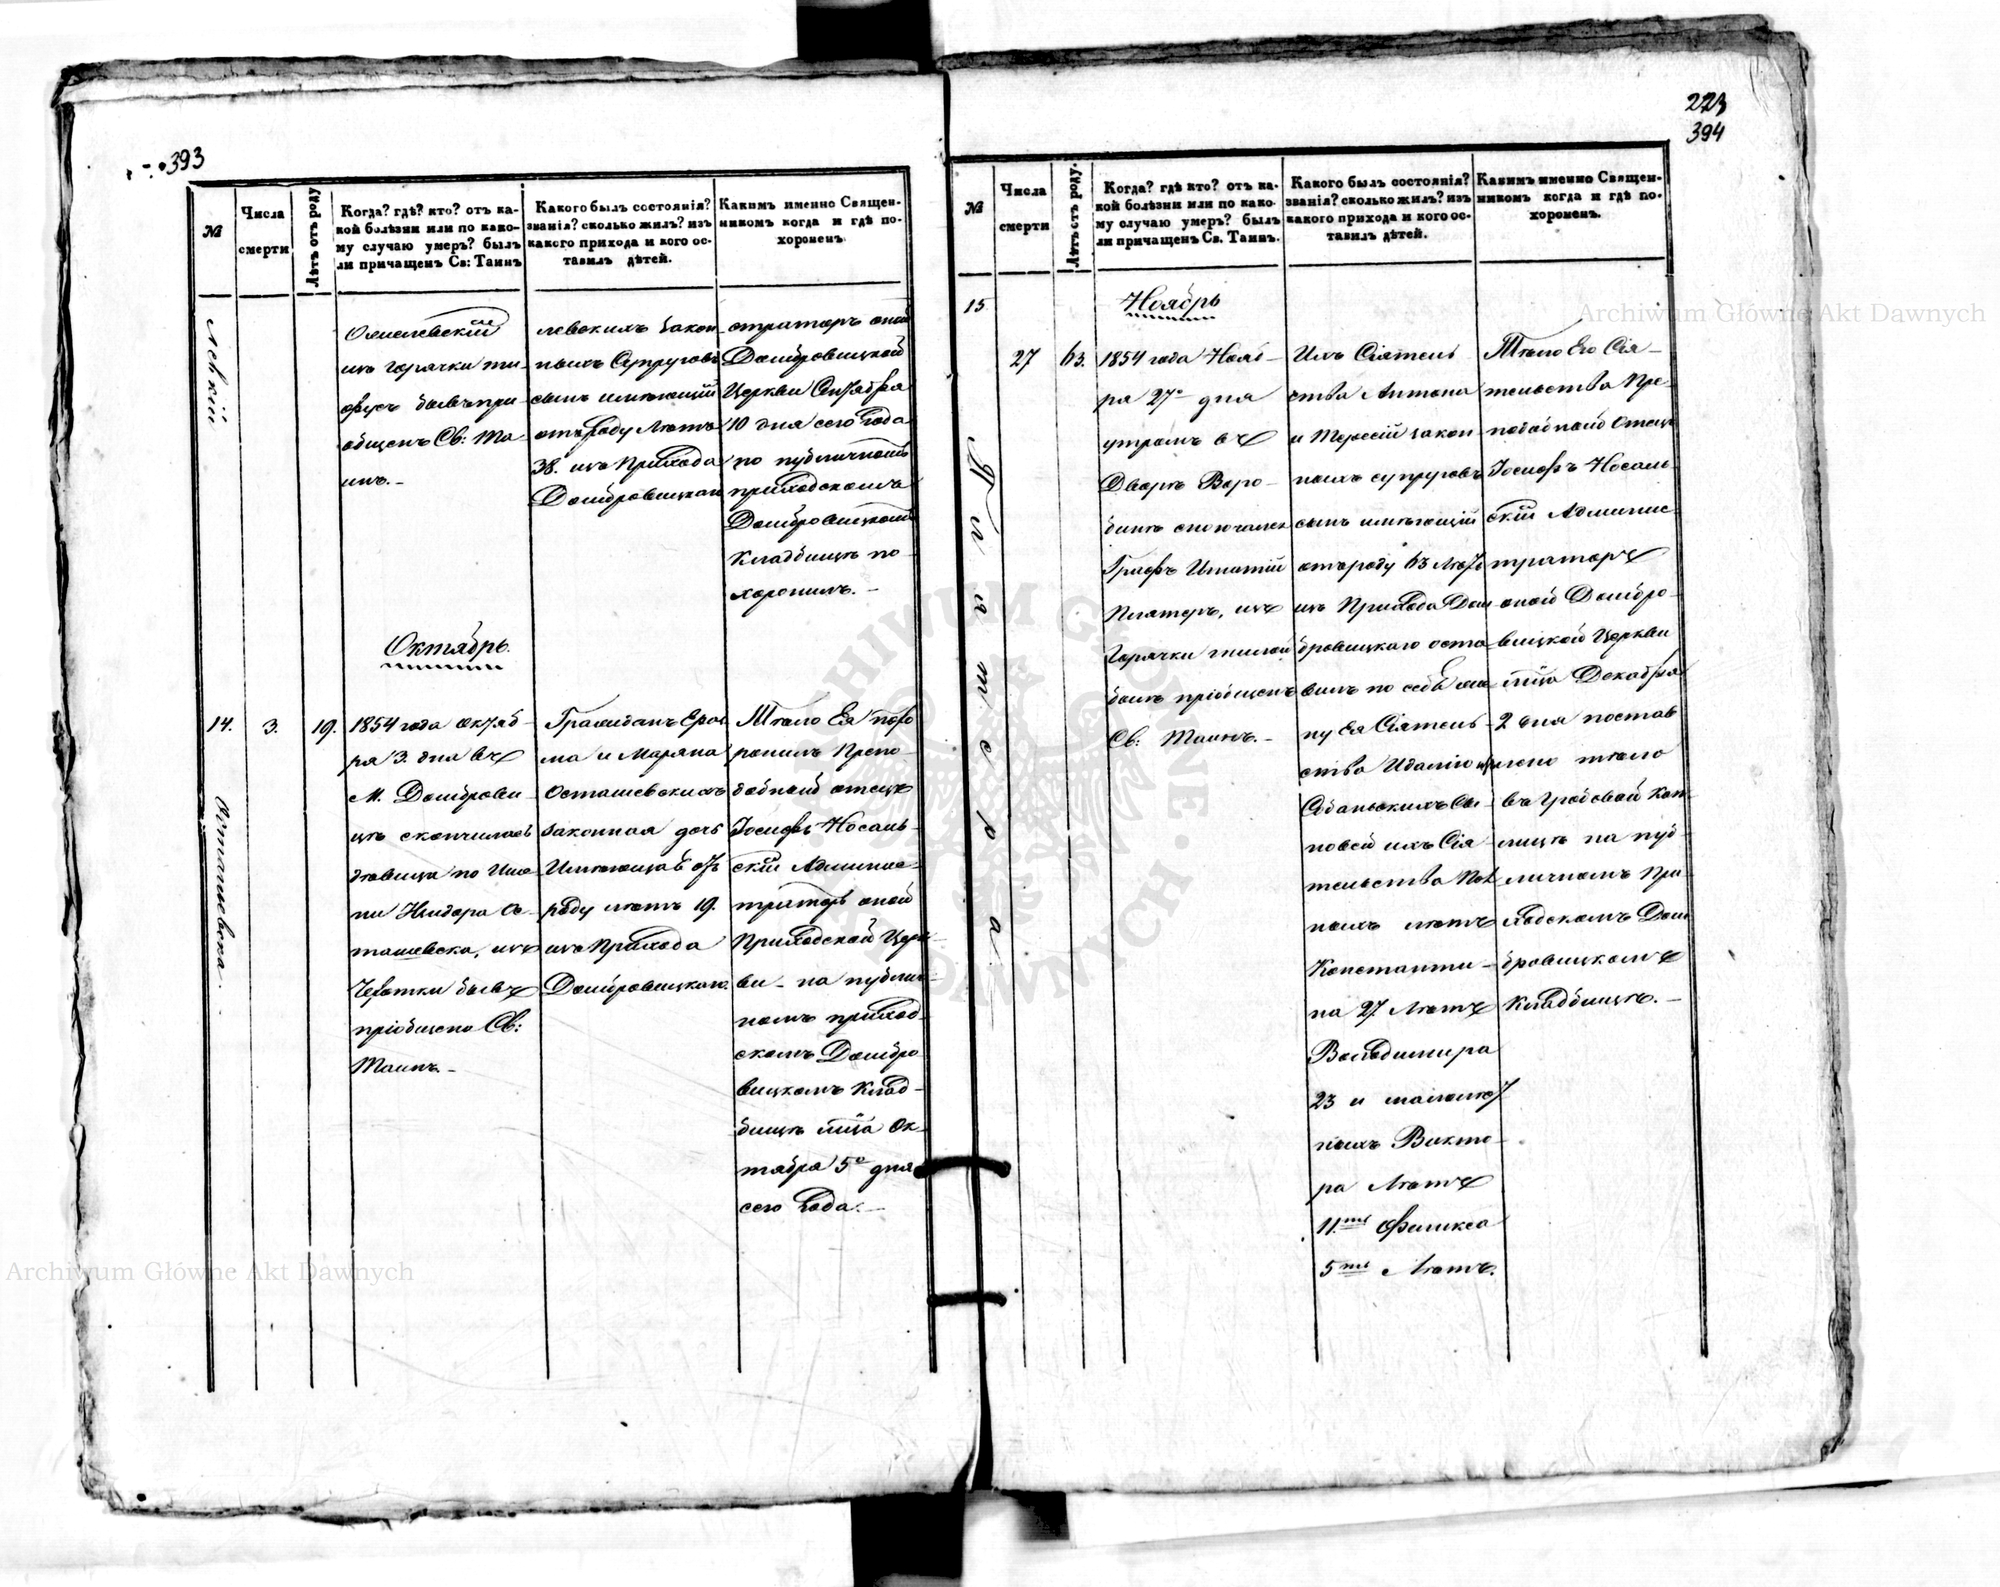 393
№
Числа
смерти
Лѣтъ отъ роду
Когда? гдѣ? кто? отъ ка-
кой болѣзни или по како-
му случаю умеръ? былъ
ли причащенъ Св: Таинъ
Какого былъ состоянія?
званія? сколько жилъ? изъ
какого прихода и кого ос-
тавилъ дѣтей.
Какимъ именно Священ-
никомъ когда и гдѣ по-
хороненъ.
изъ горячки ти-
фусъ бывъ прі
общенъ Св: Та-
инъ.-
левскихъ закон
ныхъ Супруговъ
сынъ имѣющій
отъ роду Лѣтъ
38. изъ Прихода
Домбровицкаго
страторъ оной
Домбровицкой
Церкви Октября
10 дня сего Года
но публичномъ
приходскомъ
Домбровицкомъ
Кладбищѣ по-
хоронилъ.-
Октябрь.
14.
3.
19.
Осташевска.
1854 года октяб-
ря 3. дня въ
М. Домброви-
цѣ скончилась
дѣвица по Име-
ни Исидора Ос-
ташевска, изъ
Чехотки бывъ
пріобщена Св:
Таинъ.-
Гражданъ Ераз
ма и Маріана
Осташевскихъ
законная дочь
Имѣющая отъ
роду лѣтъ 19.
изъ Прихода
Домбровицкаго.
Тѣло Ея похо
ронилъ Препо-
добный отецъ
Іосифъ Носаль-
скій Админис-
траторъ оной
Приходской Церк-
ви - на публич-
номъ приход-
скомъ Домбро
вицкомъ Клад-
бищѣ мца Ок-
тября 5го дня
сего Года.-
223
394
№
Числа
смерти
Лѣтъ отъ роду.
Когда? гдѣ кто? отъ ка-
кой болѣзни или по како-
му случаю умеръ? былъ
ли причащенъ Св. Таинъ.
Какого былъ состоянія?
званія? сколько жилъ? изъ
какого прихода и кого ос-
тавилъ дѣтей.
Какимъ именно Священ-
никомъ когда и гдѣ по-
хороненъ.
15
Ноябрь
27
63.
Платера
1854 года Нояб-
ря 27го дня
утромъ въ
Дворѣ Воро-
бинѣ скончался
Графъ Игнатій
Платеръ, изъ
Горячки гнилой
бывъ пріобщенъ
Св: Таинъ.-
Ихъ Сіятель
ства Антона
и Терессій закон
ныхъ супруговъ
сынъ имѣющій
отъ роду 63 лѣтъ
изъ Прихода Дом
бровицкаго оста-
вилъ по себѣ же-
ну Ея Сіятель-
ства Идалію изъ
Собанскихъ Сы-
новей ихъ Сія-
тельства Пол-
ныхъ лѣтъ
Константи-
на 27. Лѣтъ
Володимира
23 и малолѣт
ныхъ Викто-
ра Лѣтъ
11.ти Феликса
5ти Лѣтъ.
Тѣло Его Сія-
тельства Пре-
подобный Отецъ
Іосифъ Носаль-
скій Админис-
траторъ
оной Домбро-
вицкой Церкви
мца Декабря
2 дня постав
лено тѣло
въ Гробовой Кап-
лицѣ на пуб-
личномъ При
ходскомъ Дом
бровицкомъ
Кладбищѣ.-
Archiwum Główne Akt Dawnych
Archiwum Główne Akt Dawnych
ARCHIWUM GŁÓWNE AKT DAWNYCH